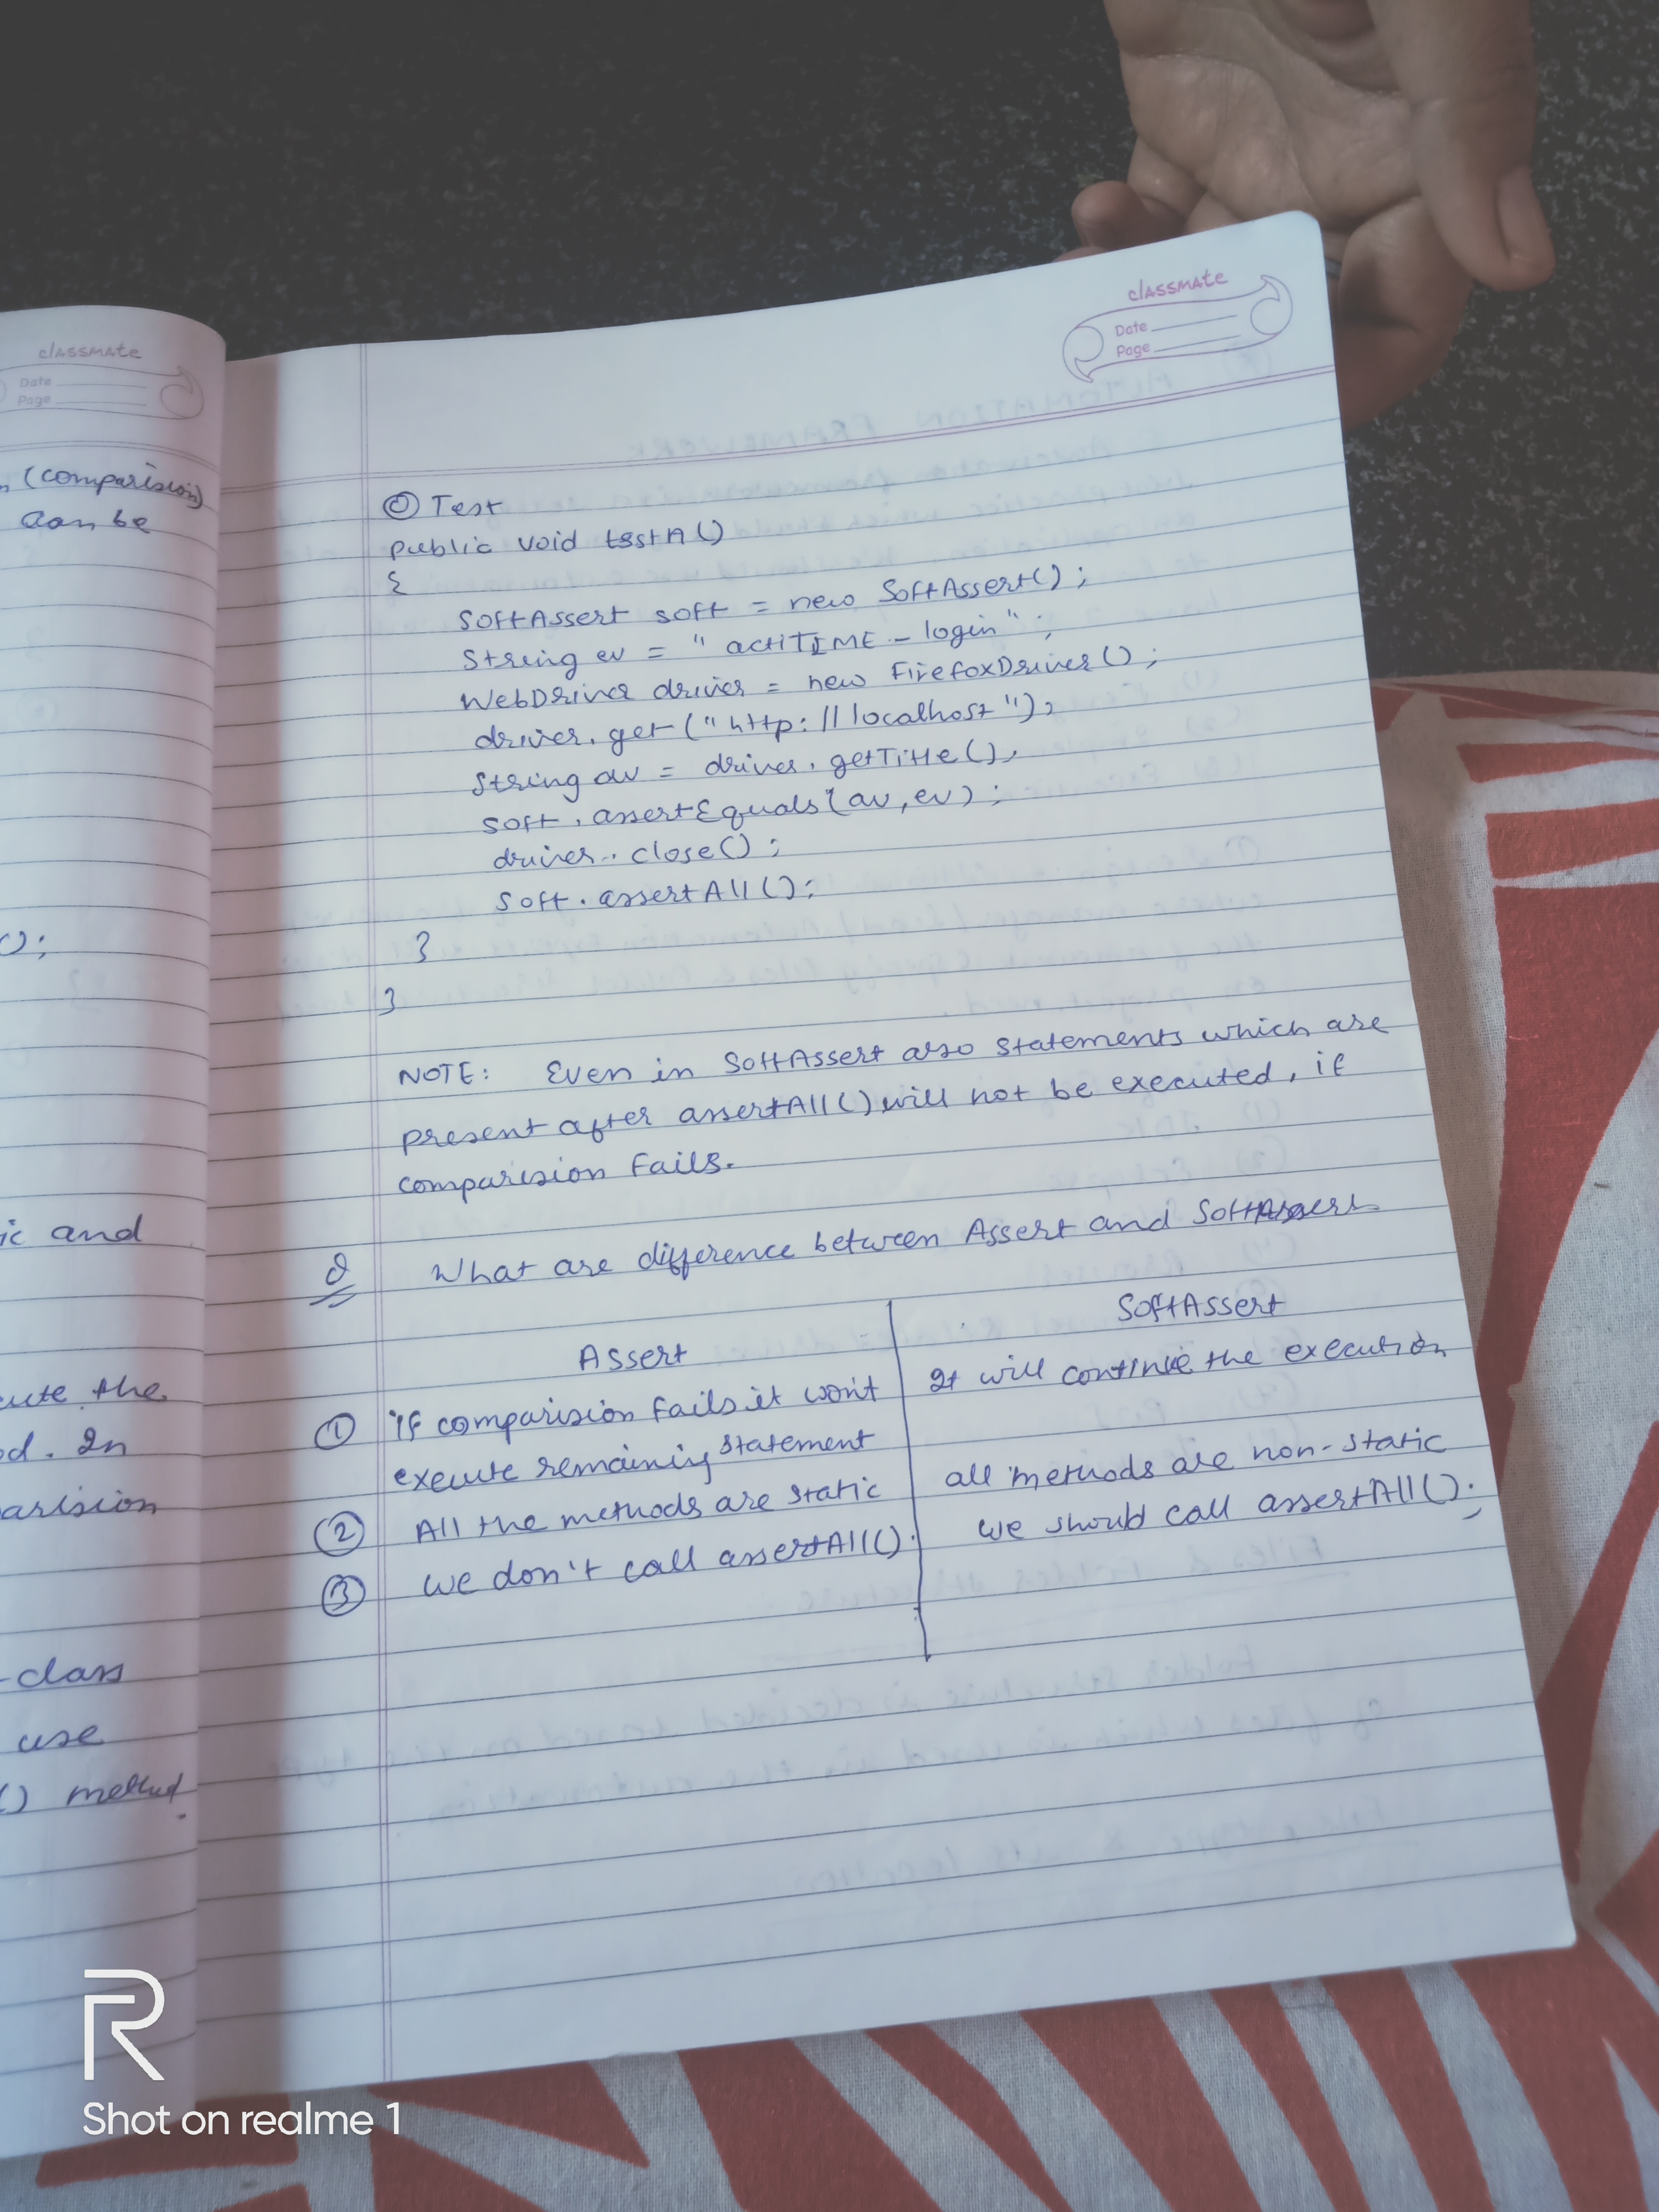 classmate
Date
Page
(comparision)
can be
();
ic and
cute the
od. In
arision
-class
use
() method.
classmate
Date
Page
@ Test
public void testA()
{
SoftAssert soft = new SoftAssert();
String ev = "actiTIME - login";
WebDriver driver = new FirefoxDriver();
driver.get("http://localhost");
String av = driver.getTitle();
soft.assertEquals(av,ev);
driver.close();
soft.assertAll();
}
}
NOTE: Even in SoftAssert also statements which are
present after assertAll() will not be executed, if
comparision fails.
Q What are difference between Assert and SoftAssert
Assert SoftAssert
① If comparision fails it won't It will continue the execution
execute remaining statement
② All the methods are static all methods are non-static
③ we don't call assertAll(). we should call assertAll();
R
Shot on realme 1